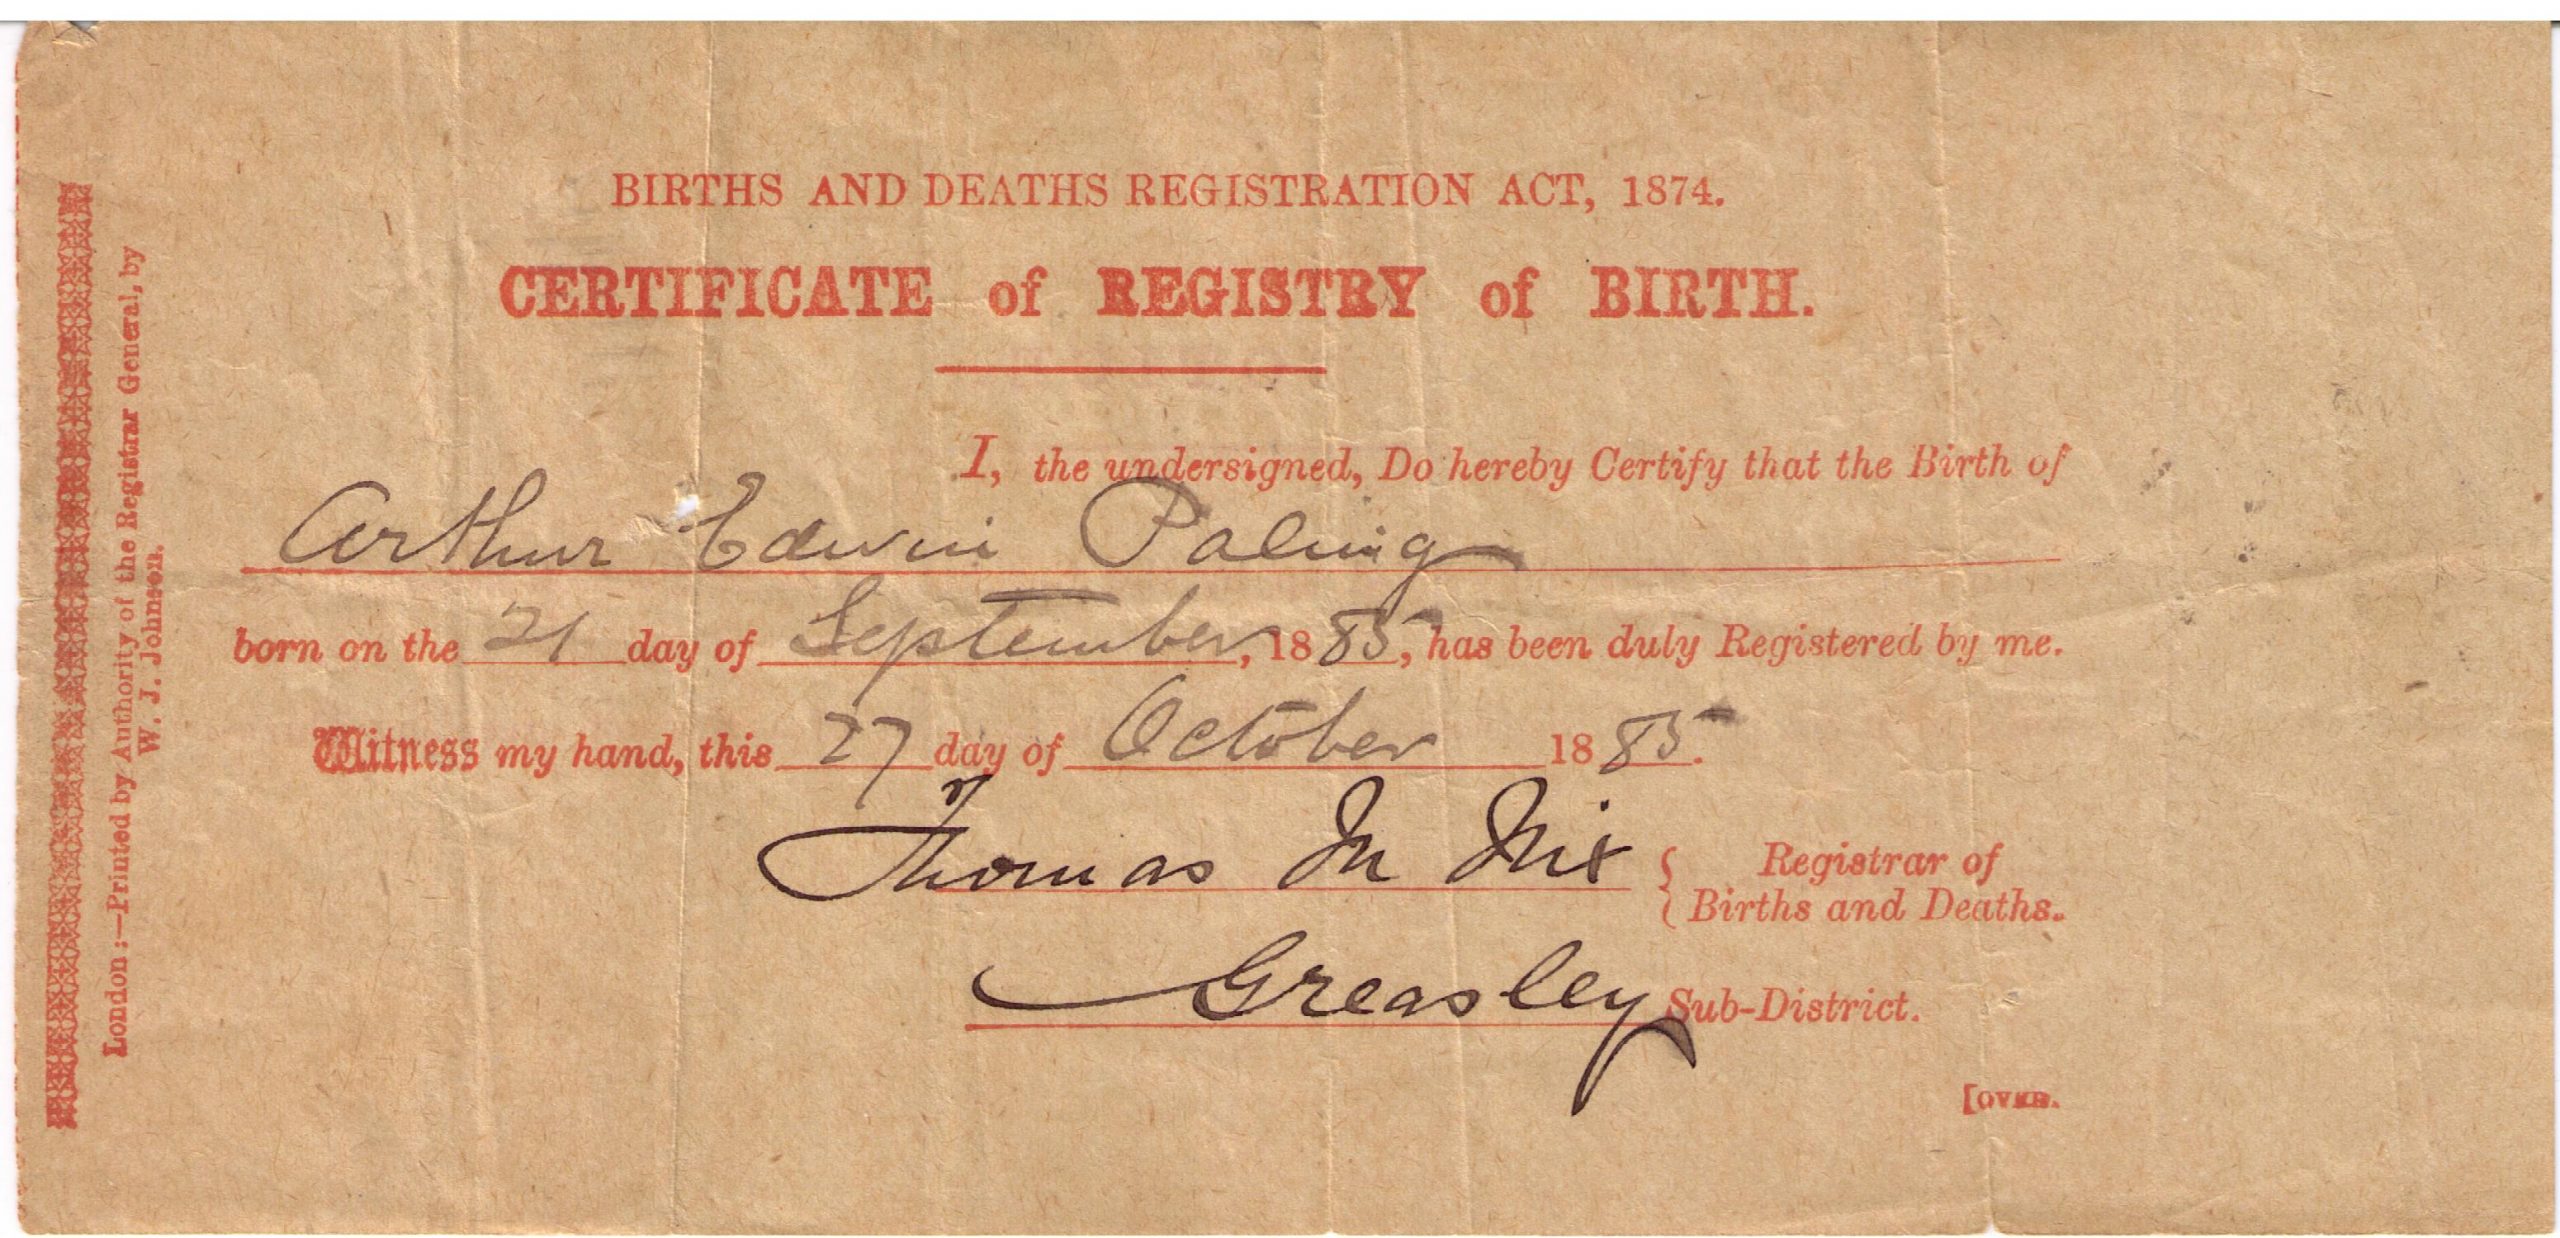 BIRTHS AND DEATHS REGISTRATION ACT, 1874.
CERTIFICATE of REGISTRY of BIRTH.
I, the undersigned, Do hereby Certify that the Birth of
Arthur Edwin Paling
born on the 21 day of September, 1885, has been duly Registered by me.
Witness my hand, this 27 day of October 1885.
Thomas M Nix { Registrar of
Births and Deaths.
Greasley Sub-District.
[OVER.
London:—Printed by Authority of the Registrar General, by
W. J. Johnson.